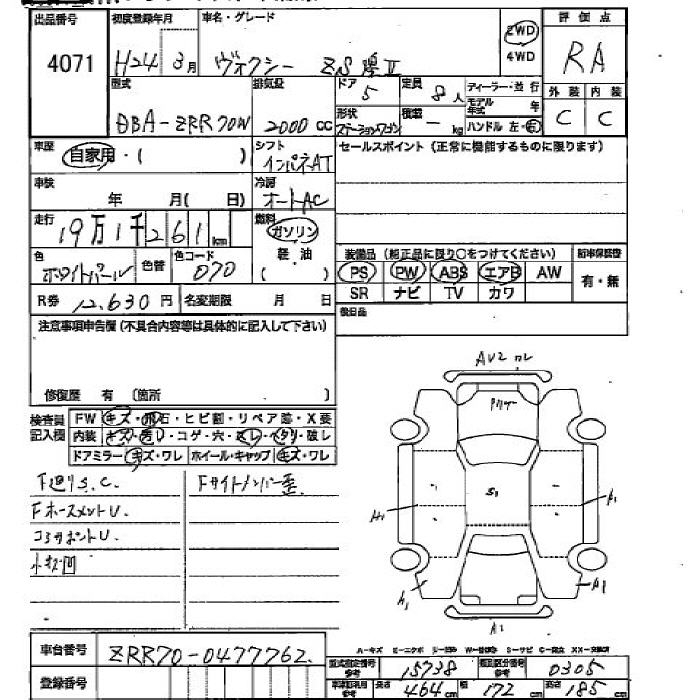 出品番号 初度登録年月 車名・グレード 評価点
4071 H24 3月 ヴォクシー ZS煌Ⅱ 2WD 4WD RA
型式 排気量 ドア 定員 ディーラー・並行 外装 内装
DBA-ZRR70W 2000cc 5 8人 モデル年式 年 C C
形状 ステーションワゴン 積載 - kg ハンドル 左・右
車歴 自家用・( ) シフト インパネAT セールスポイント(正常に機能するものに限ります)
車検 年 月( 日) 冷房 オートAC
走行 19万1千261km 燃料 ガソリン
軽・油
( )
色 ホワイトパール 色替 色コード 070
装備品(純正品に限り○をつけてください) 新車保証書
PS PW ABS エアB AW 有・無
SR ナビ TV カワ
R券 12,630円 名変期限 月 日
後日品
注意事項申告欄(不具合内容等は具体的に記入して下さい)
修復歴 有 (箇所 )
検査員記入欄 FW キズ・飛石・ヒビ割・リペア跡・X要
内装 キズ・汚レ・コゲ・穴・スレ・ヘタリ・破レ
ドアミラー キズ・ワレ ホイール・キャップ キズ・ワレ
下廻りS.C. Fサイドメンバー歪
FホースメントU.
コアサポートU.
小キズ凹
AU2 ワレ
Pillar
S1
A1 A1
A1 A1
A2
A-キズ
車台番号 ZRR70-0477762
登録番号
型式指定番号 参考 15738 類別区分番号 参考 0305
参考 長さ 464cm 幅 172cm 高さ 185cm